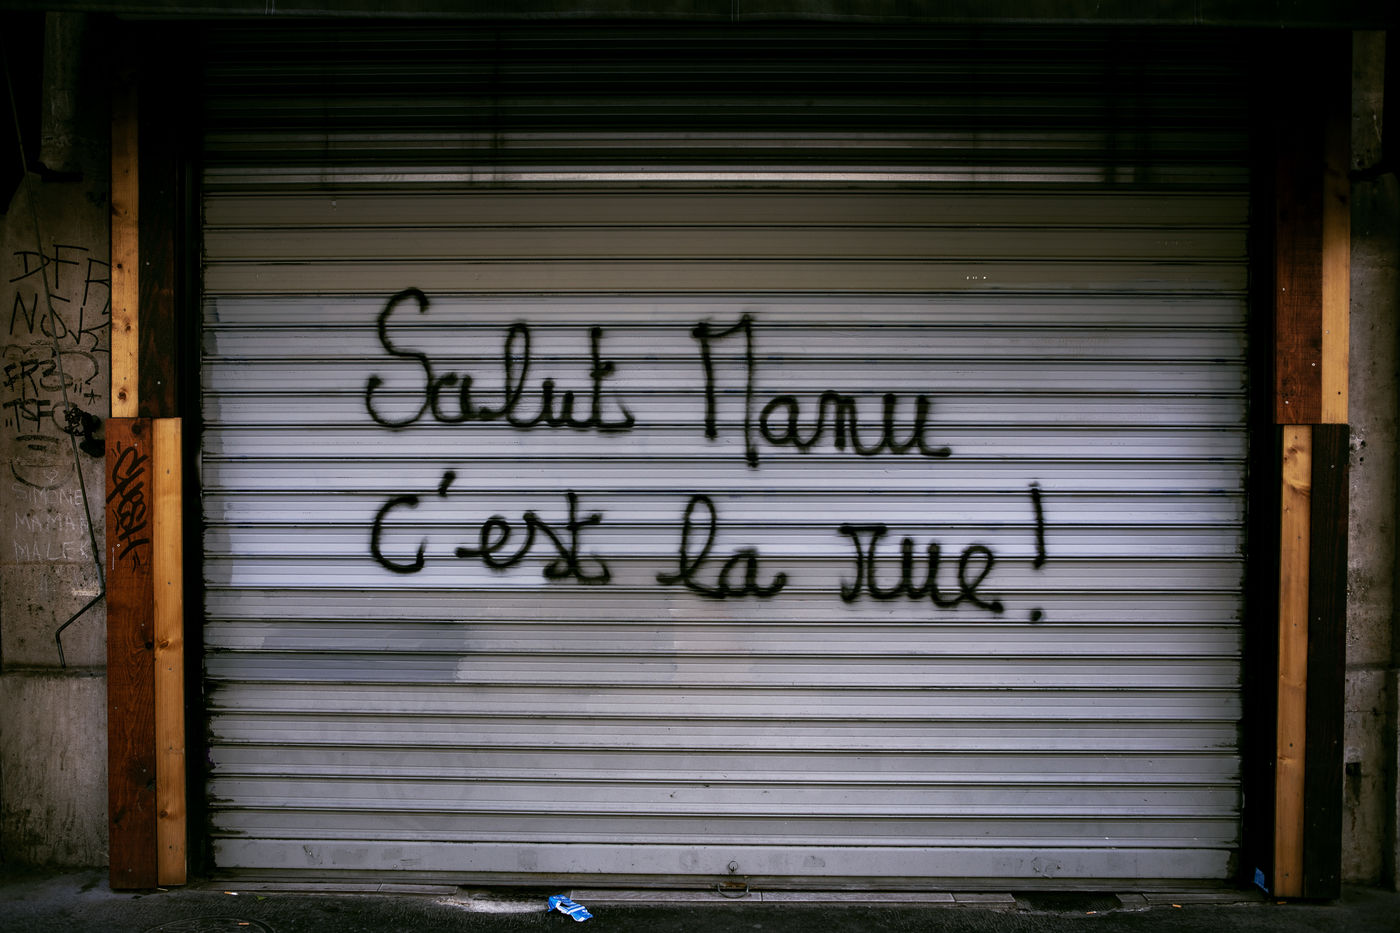 Salut Manu
C'est la rue!
DFR
SIMONE
MAMA
MALEK